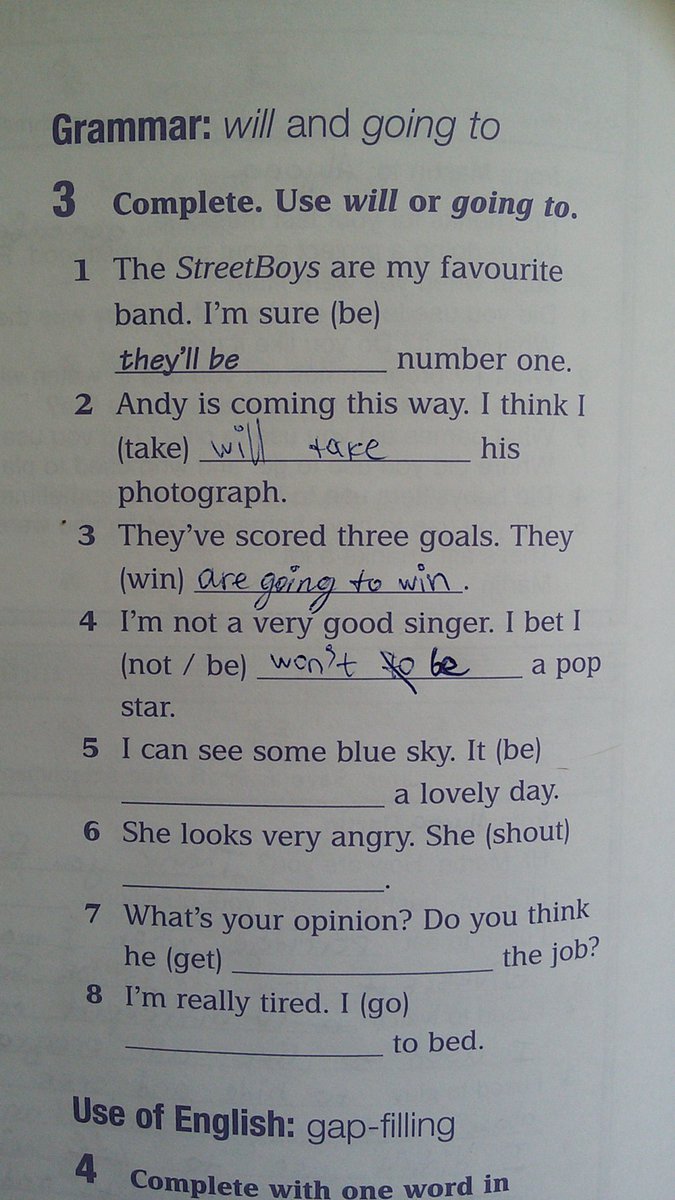 Grammar: will and going to
3 Complete. Use will or going to.
1 The StreetBoys are my favourite
band. I'm sure (be)
they'll be number one.
2 Andy is coming this way. I think I
(take) will take his
photograph.
3 They've scored three goals. They
(win) are going to win.
4 I'm not a very good singer. I bet I
(not / be) won't to be a pop
star.
5 I can see some blue sky. It (be)
a lovely day.
6 She looks very angry. She (shout)
.
7 What's your opinion? Do you think
he (get) the job?
8 I'm really tired. I (go)
to bed.
Use of English: gap-filling
4 Complete with one word in